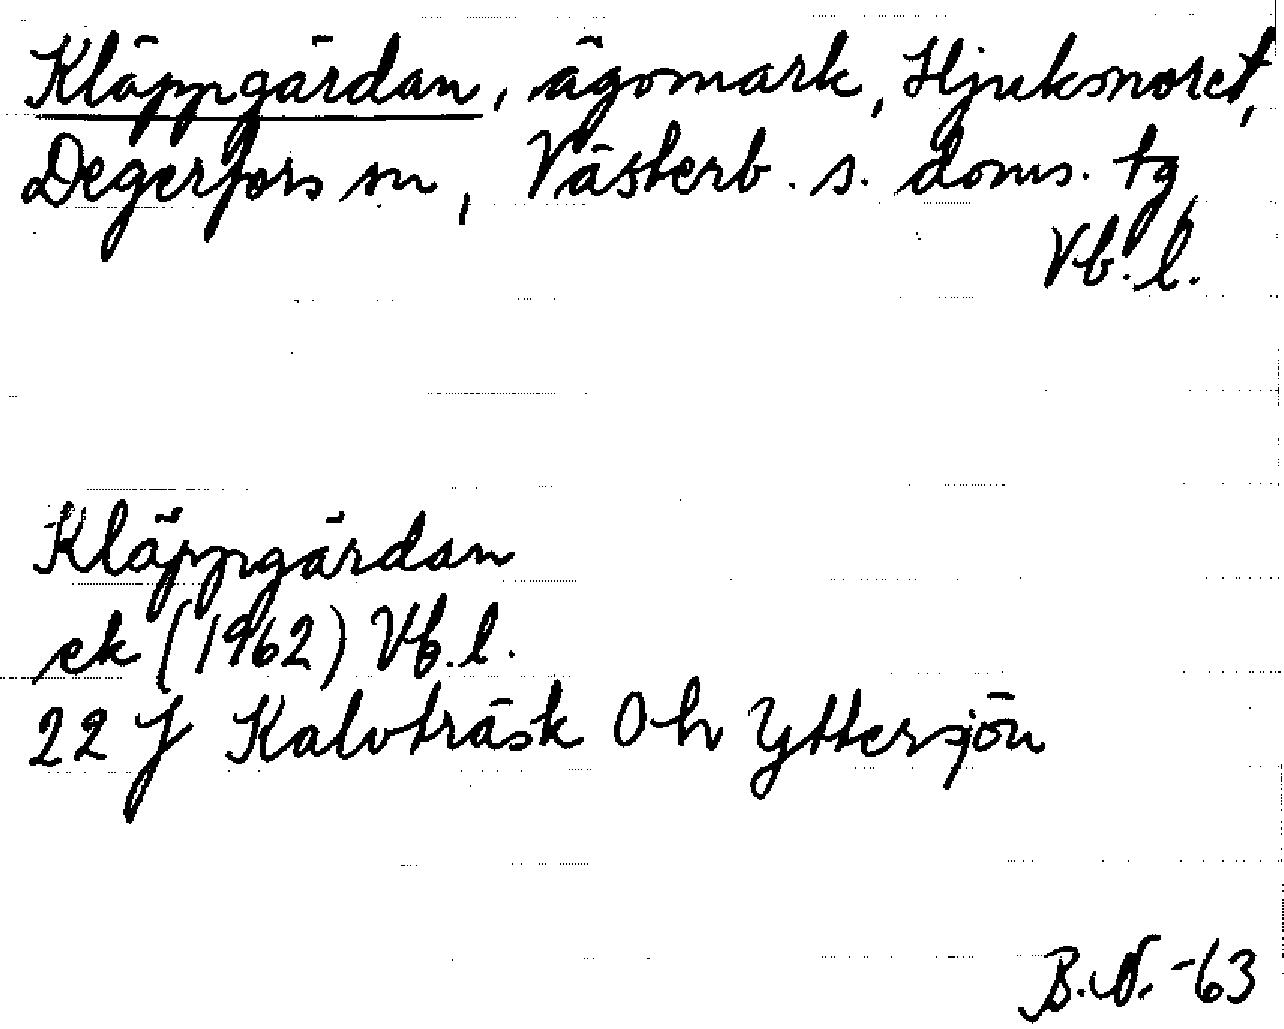 Kläppgärdan, ägomark, Hjuksnoret,
Degerfors sn, Västerb. s. doms. tg
Vb. l.
Kläppgärdan
ek (1962) Vb. l.
22 J Kalvträsk 0 h Yttersjön
B.N. -63